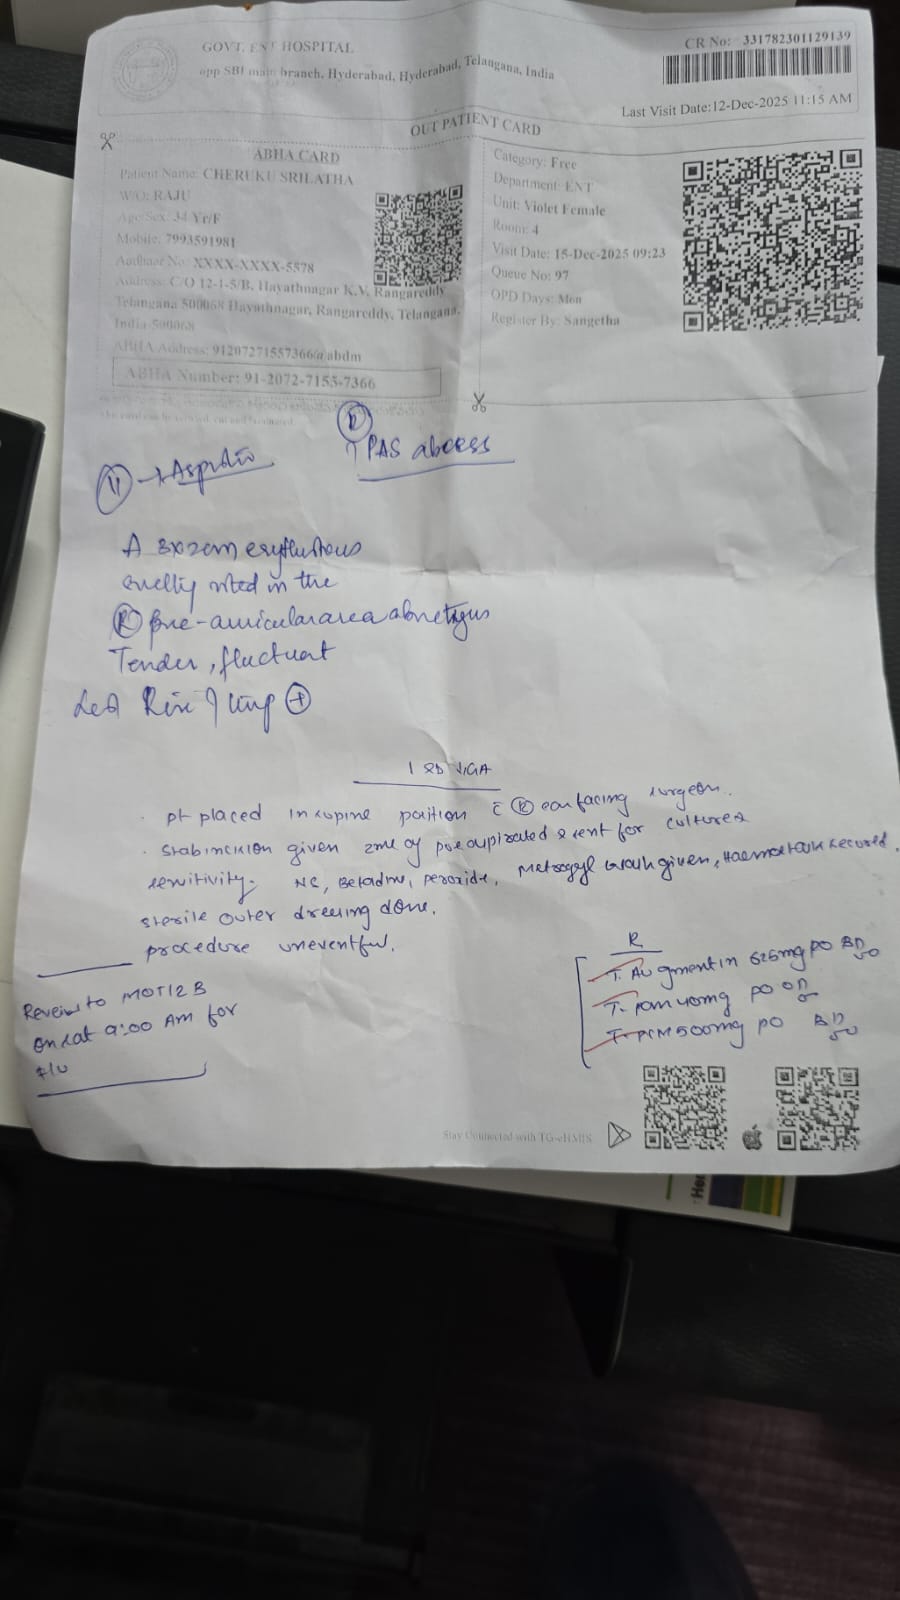 GOVT. ENT HOSPITAL
opp SBI main branch, Hyderabad, Hyderabad, Telangana, India
CR No: 331782301129139
Last Visit Date:12-Dec-2025 11:15 AM
OUT PATIENT CARD
ABHA CARD
Patient Name: CHERUKU SRILATHA
W/O: RAJU
Age/Sex: 34 Yr/F
Mobile: 7993591981
Aadhaar No: XXXX-XXXX-5578
Address: C/O 12-1-5/B, Hayathnagar K.V. Rangareddy
Telangana 500068 Hayathnagar, Rangareddy, Telangana,
India-500068
ABHA Address: 91207271557366@abdm
ABHA Number: 91-2072-7155-7366
Category: Free
Department: ENT
Unit: Violet Female
Room: 4
Visit Date: 15-Dec-2025 09:23
Queue No: 97
OPD Days: Mon
Register By: Sangetha
R
PAS abcess
A 3x2cm
noted in the
R pre-auricular area
Tender, fluctuant
+
pt placed in supine position c R ear facing surgeon.
stab incision given 2ml of pus aspirated & sent for culture &
sensitivity. NS, Betadine, peroxide, Metrogyl wash given, Haemostasis secured.
sterile outer dressing done.
procedure uneventful.
Rx
T. Augmentin 625mg PO BD
T. PAN 40mg PO OD
T. PCM 500mg PO BD
on sat 9:00 Am for
f/u
Stay Connected with TG-eHMIS